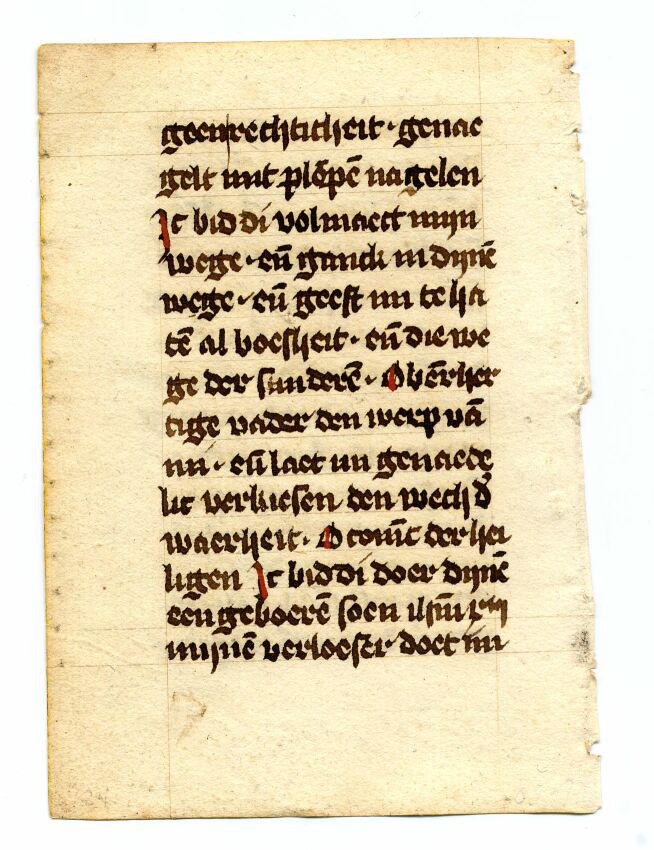 geenrechticheit · genae
gelt mit plōpē nagelen
Ic bid di volmaect mijn
wege · eñ ganck in dijnē
wege · eñ geeft mi te ha
tē al boesheit · eñ die we
ge der sunderē · O bērher
tige vader den werp vā
mi · eñ laet mi genaede
lic verkiesen den wech d'
waerheit · O conīc der hei
ligen Ic bid di doer dijnē
een geboerē soen
mijnē verloeser doet mi